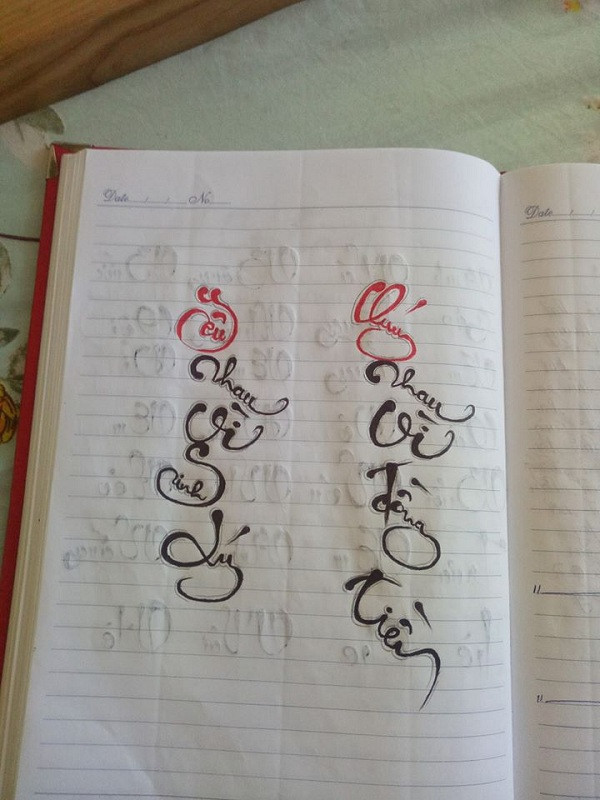 Date No.
Nhau
Vì
Sinh
Lý
Nhau
Vì
Đồng
Tiền
Date